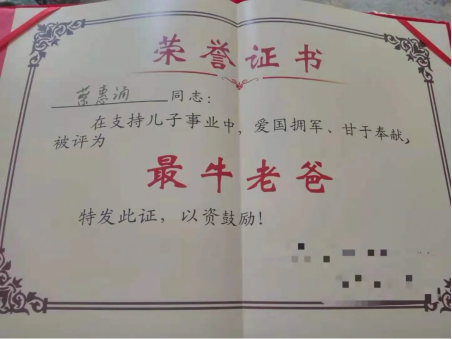 荣誉证书
蔡惠涌 同志：
在支持儿子事业中，爱国拥军、甘于奉献，
被评为
最牛老爸
特发此证，以资鼓励！